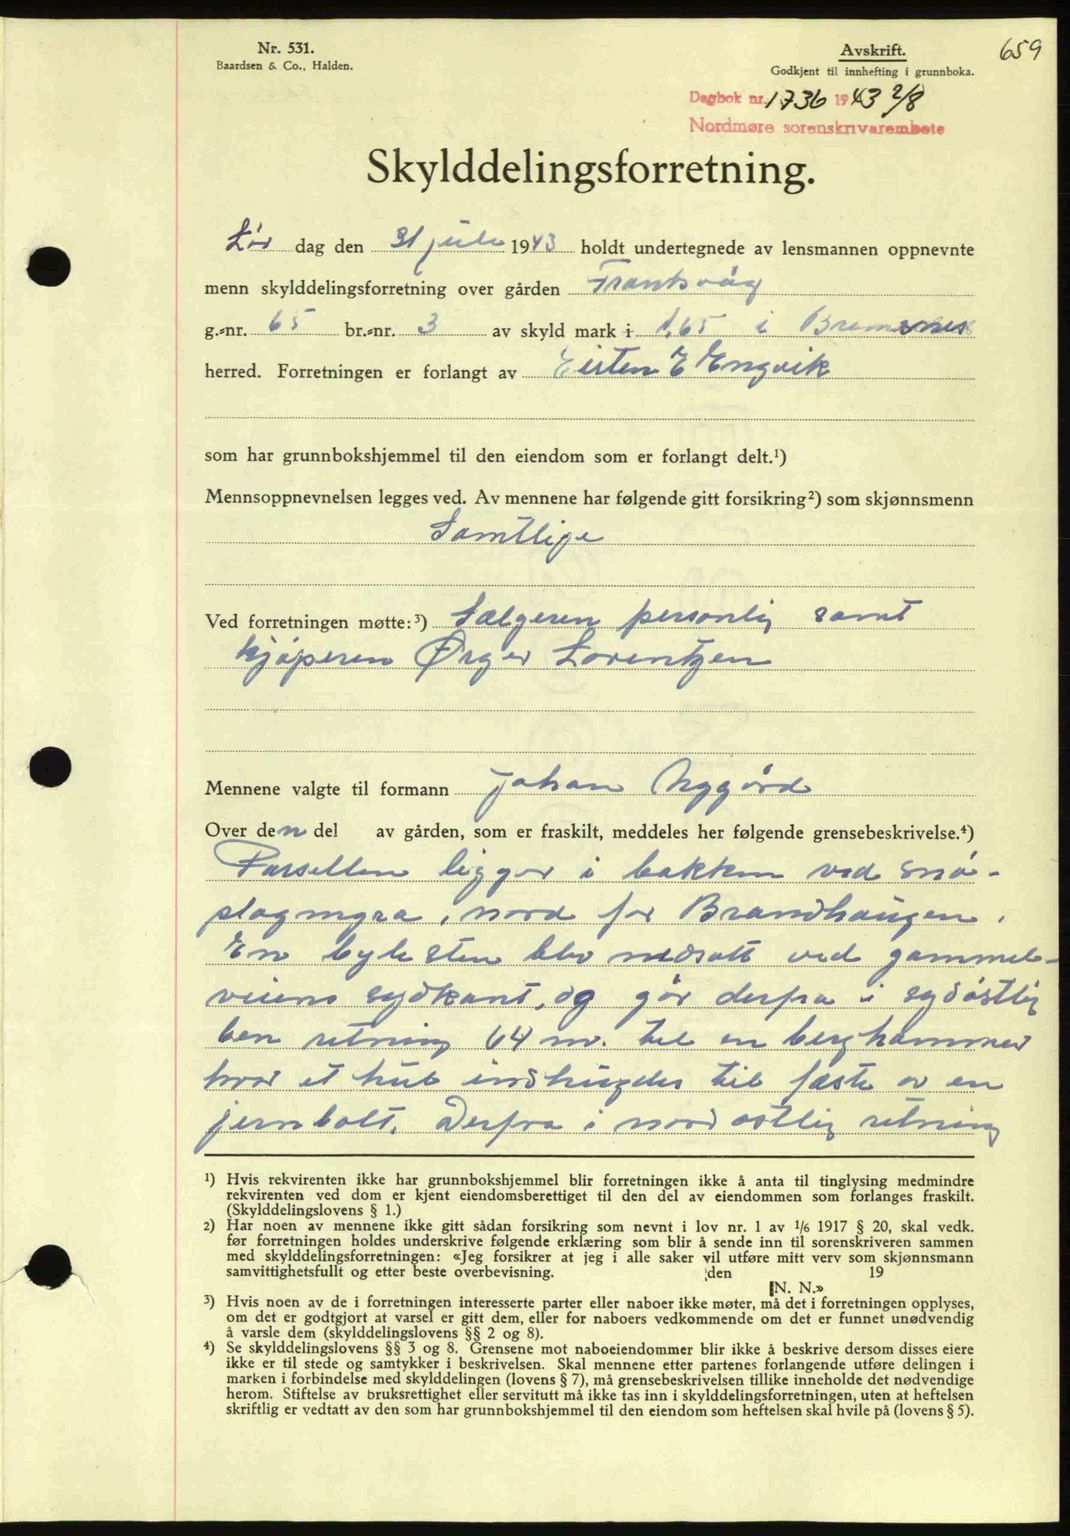 Nr. 531.
Baardsen & Co., Halden.
Avskrift.
Godkjent til innhefting i grunnboka.
659
Dagbok nr. 1736 1943 2/8
Nordmøre sorenskrivarembete
Skylddelingsforretning.
Lør dag den 31 juli 1943 holdt undertegnede av lensmannen oppnevnte
menn skylddelingsforretning over gården Frantsvåg
g.-nr. 65 br.-nr. 3 av skyld mark i 1,65 i Bremsnes
herred. Forretningen er forlangt av Eisten E Engvik
som har grunnbokshjemmel til den eiendom som er forlangt delt.¹)
Mennsoppnevnelsen legges ved. Av mennene har følgende gitt forsikring²) som skjønnsmenn
Samtlige
Ved forretningen møtte:³) Sælgeren personlig samt
kjøperen Ørger Lorentzen
Mennene valgte til formann Johan Nygård
Over den del av gården, som er fraskilt, meddeles her følgende grensebeskrivelse.⁴)
Parsellen ligger i bakken ved snø-
plogmyra, nord for Brandhaugen.
En byttesten blev nedsatt ved gammel-
veiens sydkant, og går derfra i sydøstlig
ben retning 64 m. til en berghammer
hvor et hul indhugdes til fæste av en
jernbolt. Derfra i nordøstlig retning
¹) Hvis rekvirenten ikke har grunnbokshjemmel blir forretningen ikke å anta til tinglysing medmindre
rekvirenten ved dom er kjent eiendomsberettiget til den del av eiendommen som forlanges fraskilt.
(Skylddelingslovens § 1.)
²) Har noen av mennene ikke gitt sådan forsikring som nevnt i lov nr. 1 av 1/6 1917 § 20, skal vedk.
før forretningen holdes underskrive følgende erklæring som blir å sende inn til sorenskriveren sammen
med skylddelingsforretningen: «Jeg forsikrer at jeg i alle saker vil utføre mitt verv som skjønnsmann
samvittighetsfullt og etter beste overbevisning. den 19
N. N.»
³) Hvis noen av de i forretningen interesserte parter eller naboer ikke møter, må det i forretningen opplyses,
om det er godtgjort at varsel er gitt dem, eller for naboers vedkommende om det er funnet unødvendig
å varsle dem (skylddelingslovens §§ 2 og 8).
⁴) Se skylddelingslovens §§ 3 og 8. Grensene mot naboeiendommer blir ikke å beskrive dersom disses eiere
ikke er til stede og samtykker i beskrivelsen. Skal mennene etter partenes forlangende utføre delingen i
marken i forbindelse med skylddelingen (lovens § 7), må grensebeskrivelsen tillike inneholde det nødvendige
herom. Stiftelse av bruksrettighet eller servitutt må ikke tas inn i skylddelingsforretningen, uten at heftelsen
skriftlig er vedtatt av den som har grunnbokshjemmel til den eiendom som heftelsen skal hvile på (lovens § 5).